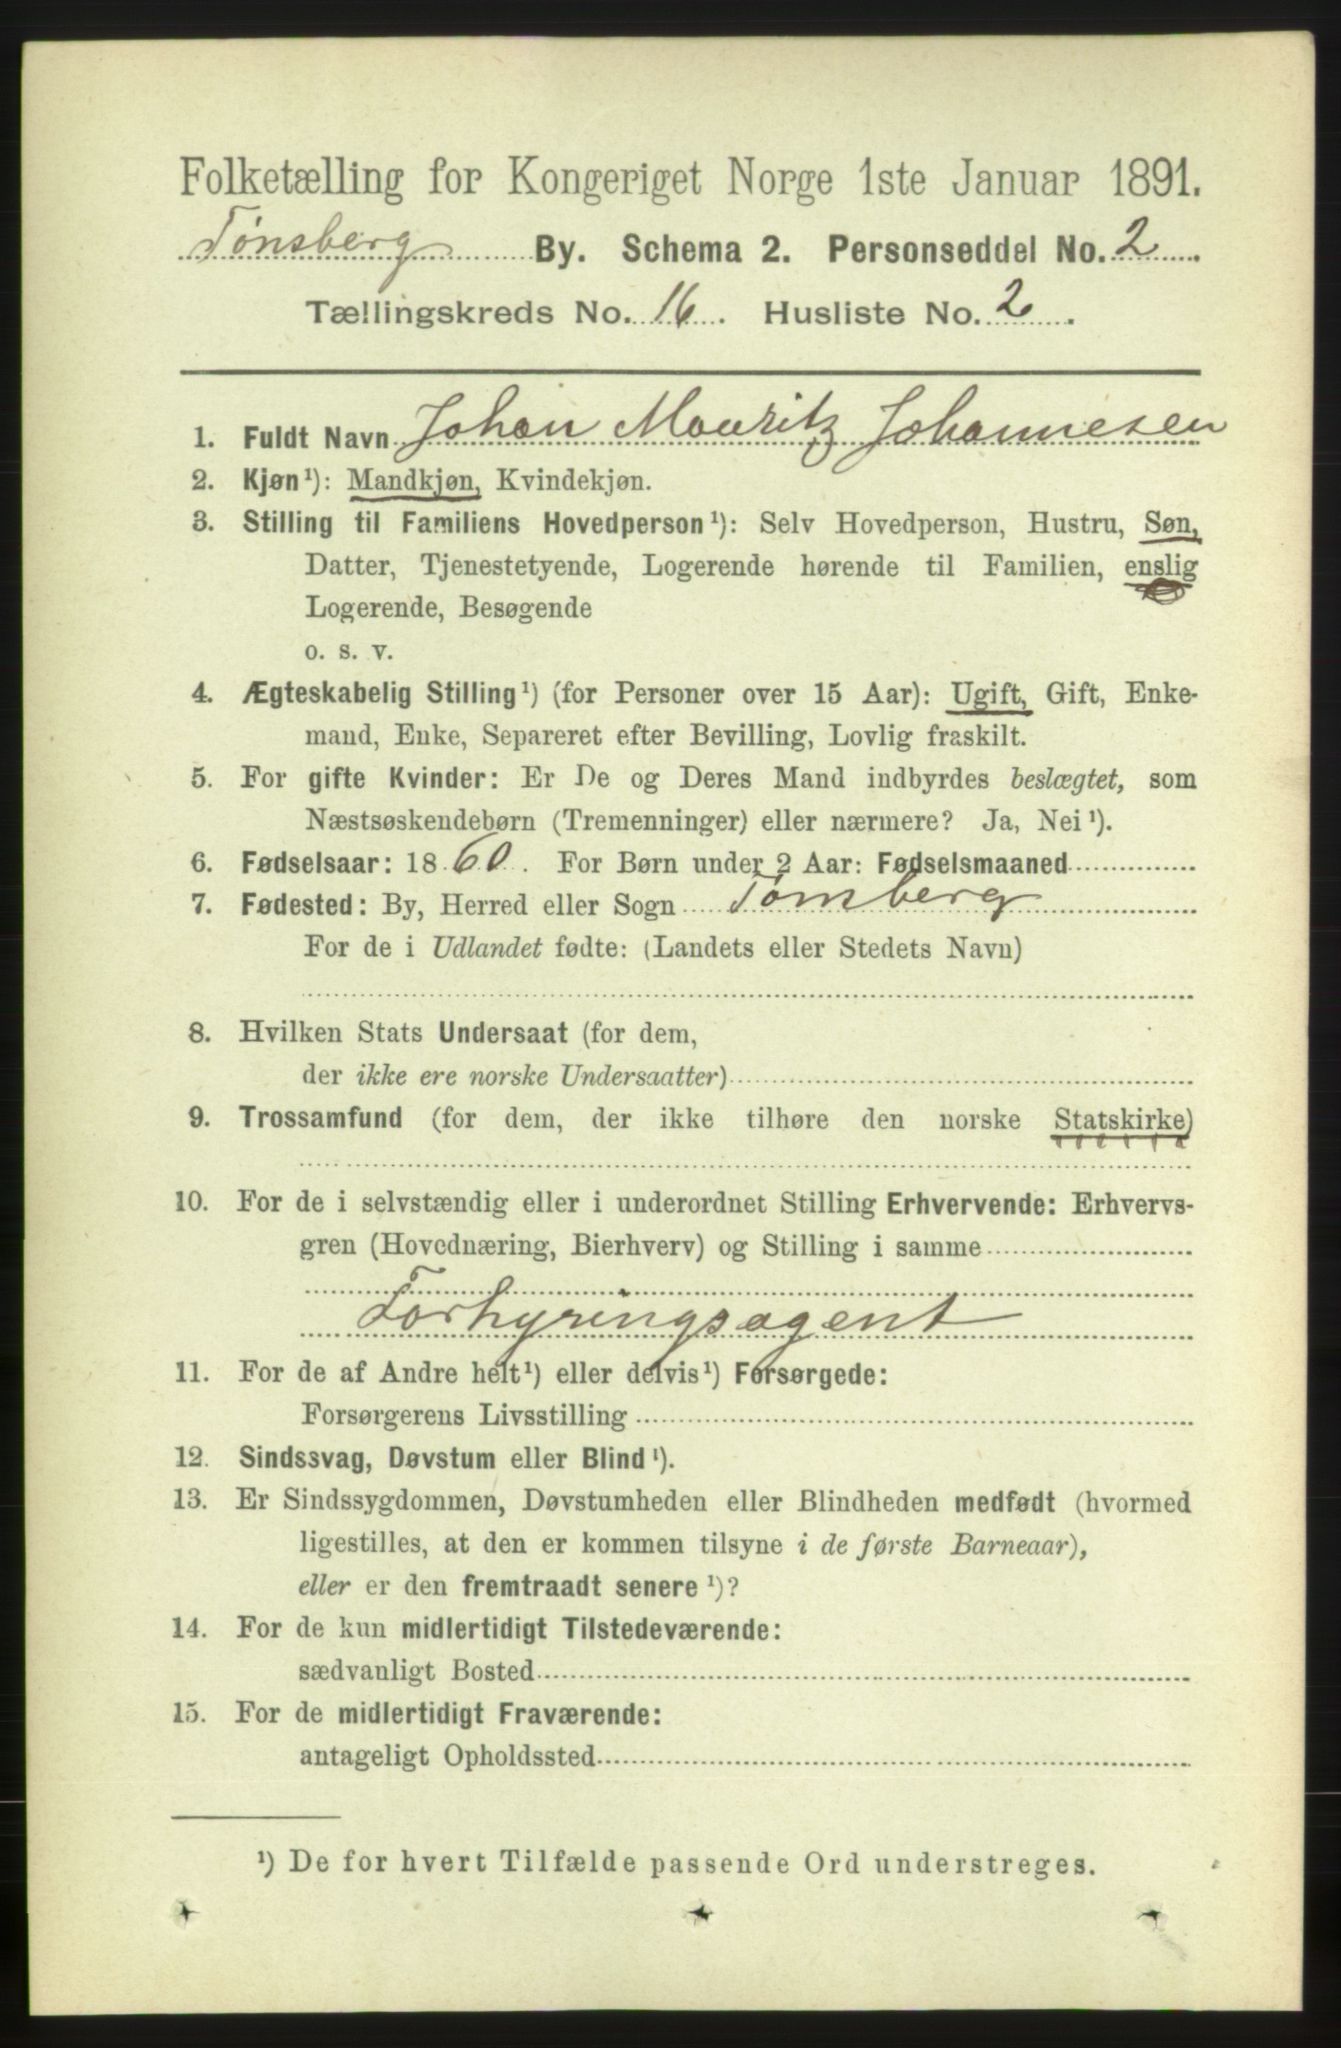 Folketælling for Kongeriget Norge 1ste Januar 1891.
Tønsberg By. Schema 2. Personseddel No. 2
Tællingskreds No. 16. Husliste No. 2.
1. Fuldt Navn Johan Mouritz Johannesen
2. Kjøn¹): Mandkjøn, Kvindekjøn.
3. Stilling til Familiens Hovedperson¹): Selv Hovedperson, Hustru, Søn,
Datter, Tjenestetyende, Logerende hørende til Familien, enslig
Logerende, Besøgende
o. s. v.
4. Ægteskabelig Stilling¹) (for Personer over 15 Aar): Ugift, Gift, Enke-
mand, Enke, Separeret efter Bevilling, Lovlig fraskilt.
5. For gifte Kvinder: Er De og Deres Mand indbyrdes beslægtet, som
Næstsøskendebørn (Tremenninger) eller nærmere? Ja, Nei¹).
6. Fødselsaar: 1860. For Børn under 2 Aar: Fødselsmaaned
7. Fødested: By, Herred eller Sogn Tønsberg
For de i Udlandet fødte: (Landets eller Stedets Navn)
8. Hvilken Stats Undersaat (for dem,
der ikke ere norske Undersaatter)
9. Trossamfund (for dem, der ikke tilhøre den norske Statskirke)
10. For de i selvstændig eller i underordnet Stilling Erhvervende: Erhvervs-
gren (Hovednæring, Bierhverv) og Stilling i samme
Forhyringsagent
11. For de af Andre helt¹) eller delvis¹) Forsørgede:
Forsørgerens Livsstilling
12. Sindssvag, Døvstum eller Blind¹).
13. Er Sindssygdommen, Døvstumheden eller Blindheden medfødt (hvormed
ligestilles, at den er kommen tilsyne i de første Barneaar),
eller er den fremtraadt senere¹)?
14. For de kun midlertidigt Tilstedeværende:
sædvanligt Bosted
15. For de midlertidigt Fraværende:
antageligt Opholdssted
¹) De for hvert Tilfælde passende Ord understreges.